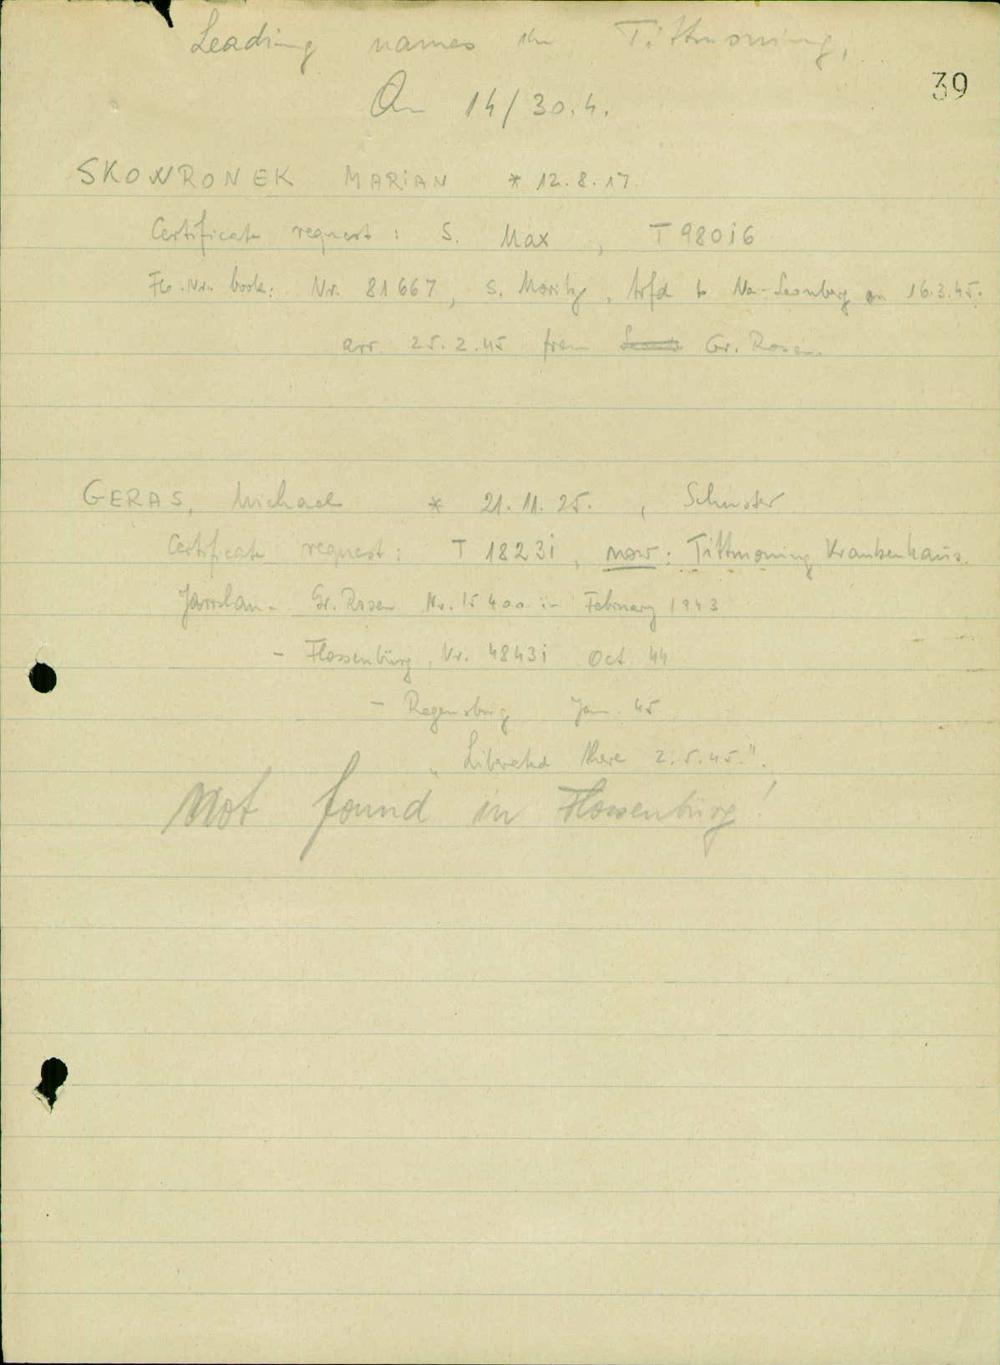 Leading names in Tittmoning,
39
On 14/30.4.
SKOWRONEK MARIAN * 12.8.17.
Certificate request: S. Max, T 98016
Flo.Nr. book: Nr. 81667, S. Moritz, trfd to Na-Leonberg on 16.3.45.
arr. 25.2.45 from Gr. Rosen.
GERAS, Michael * 21.11.25., Schuster
Certificate request: T 18231, now: Tittmoning Krankenhaus.
Jaroslau - Gr. Rosen Nr. 15400 in February 1943
- Flossenbürg, Nr. 48431 Oct. 44
- Regensburg Jan. 45
„Liberated there 2.5.45.".
Not found in Flossenbürg!